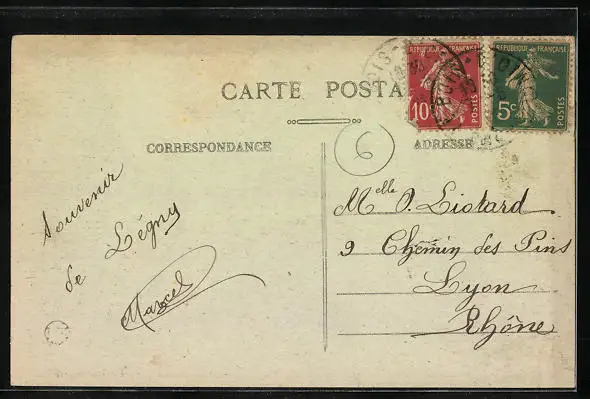 RÉPUBLIQUE FRANÇAISE
10c
POSTES
RÉPUBLIQUE FRANÇAISE
5c
POSTES
CARTE POSTA
CORRESPONDANCE
ADRESSE
6
Souvenir
de Légny
Marcel
Melle O. Liotard
9 Chemin des Pins
Lyon
Rhône